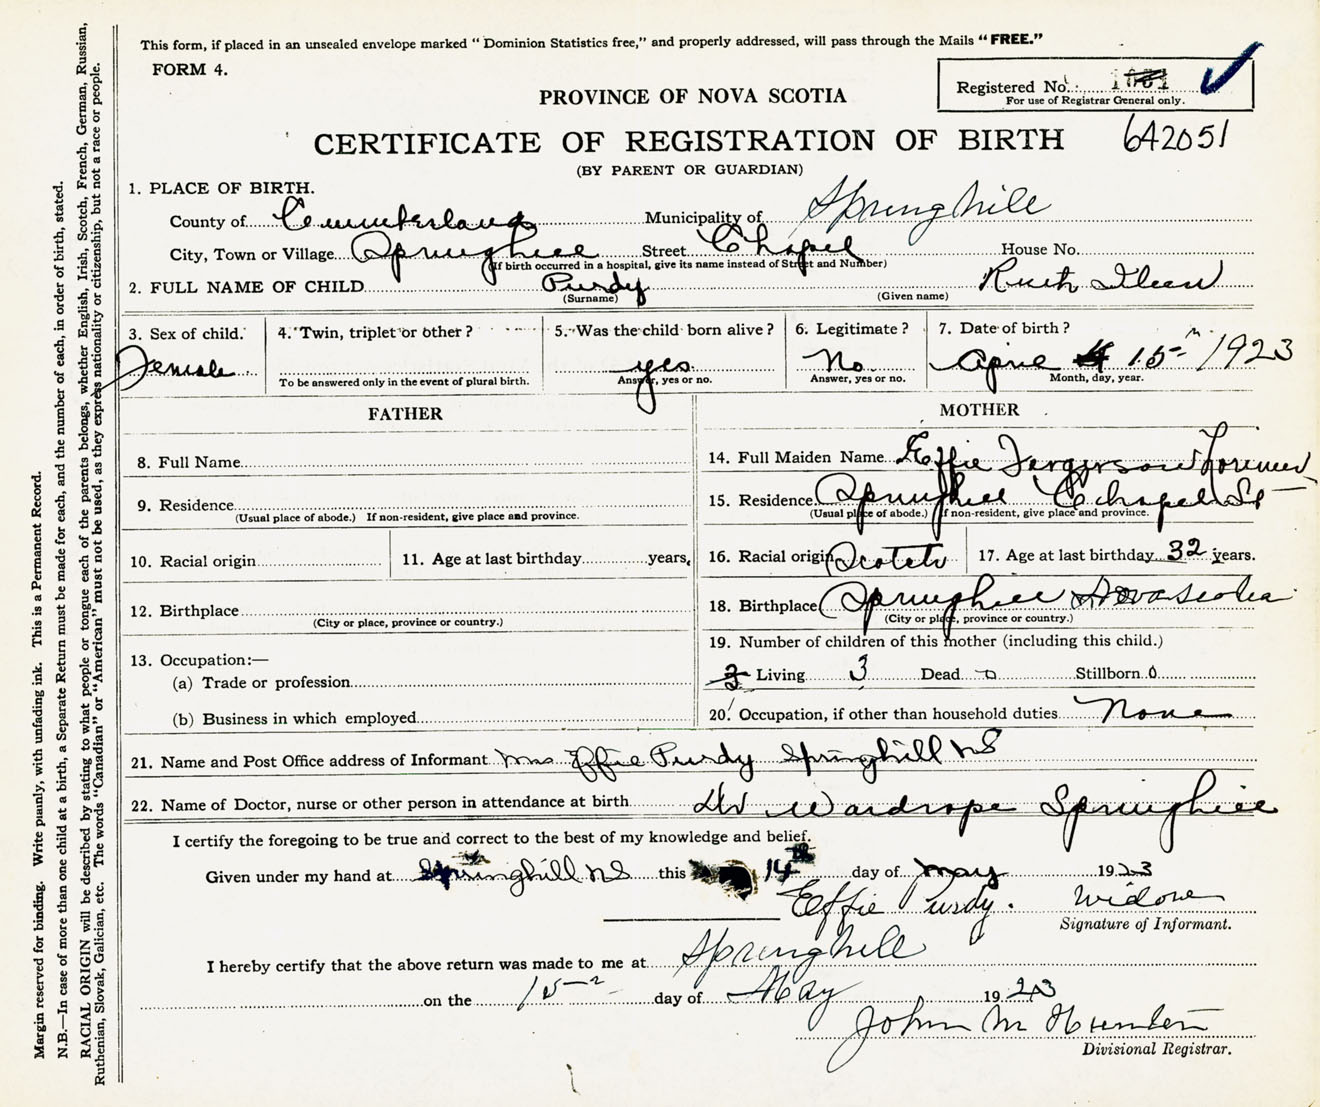 This form, if placed in an unsealed envelope marked "Dominion Statistics free," and properly addressed, will pass through the Mails "FREE."
FORM 4.
Registered No.
For use of Registrar General only.
PROVINCE OF NOVA SCOTIA
CERTIFICATE OF REGISTRATION OF BIRTH 642051
(BY PARENT OR GUARDIAN)
1. PLACE OF BIRTH.
County of Cumberland Municipality of Springhill
City, Town or Village Springhill Street Chapel House No.
(If birth occurred in a hospital, give its name instead of Street and Number)
2. FULL NAME OF CHILD Purdy Ruth Ileen
(Surname) (Given name)
3. Sex of child. 4. Twin, triplet or other? 5. Was the child born alive? 6. Legitimate? 7. Date of birth?
Female yes No April 15 1923
To be answered only in the event of plural birth. Answer, yes or no. Answer, yes or no. Month, day, year.
FATHER MOTHER
8. Full Name 14. Full Maiden Name Effie Fergerson
9. Residence 15. Residence Springhill Chapel St
(Usual place of abode.) If non-resident, give place and province. (Usual place of abode.) If non-resident, give place and province.
10. Racial origin 11. Age at last birthday years. 16. Racial origin Scotch 17. Age at last birthday 32 years.
12. Birthplace 18. Birthplace Springhill Nova Scotia
(City or place, province or country.) (City or place, province or country.)
13. Occupation:— 19. Number of children of this mother (including this child.)
(a) Trade or profession 3 Living 3 Dead 0 Stillborn 0
(b) Business in which employed 20. Occupation, if other than household duties None
21. Name and Post Office address of Informant Mrs Effie Purdy Springhill NS
22. Name of Doctor, nurse or other person in attendance at birth Dr Wardrope Springhill
I certify the foregoing to be true and correct to the best of my knowledge and belief.
Given under my hand at Springhill NS this 14th day of May 1923
Effie Purdy. Widow
Signature of Informant.
I hereby certify that the above return was made to me at Springhill
on the 15 day of May 1923
John M Hunter
Divisional Registrar.
Margin reserved for binding. Write plainly, with unfading ink. This is a Permanent Record.
N.B.—In case of more than one child at a birth, a Separate Return must be made for each, and the number of each, in order of birth, stated.
RACIAL ORIGIN will be described by stating to what people or tongue each of the parents belongs, whether English, Irish, Scotch, French, German, Russian,
Ruthenian, Slovak, Galician, etc. The words "Canadian" or "American" must not be used, as they express nationality or citizenship, but not a race or people.